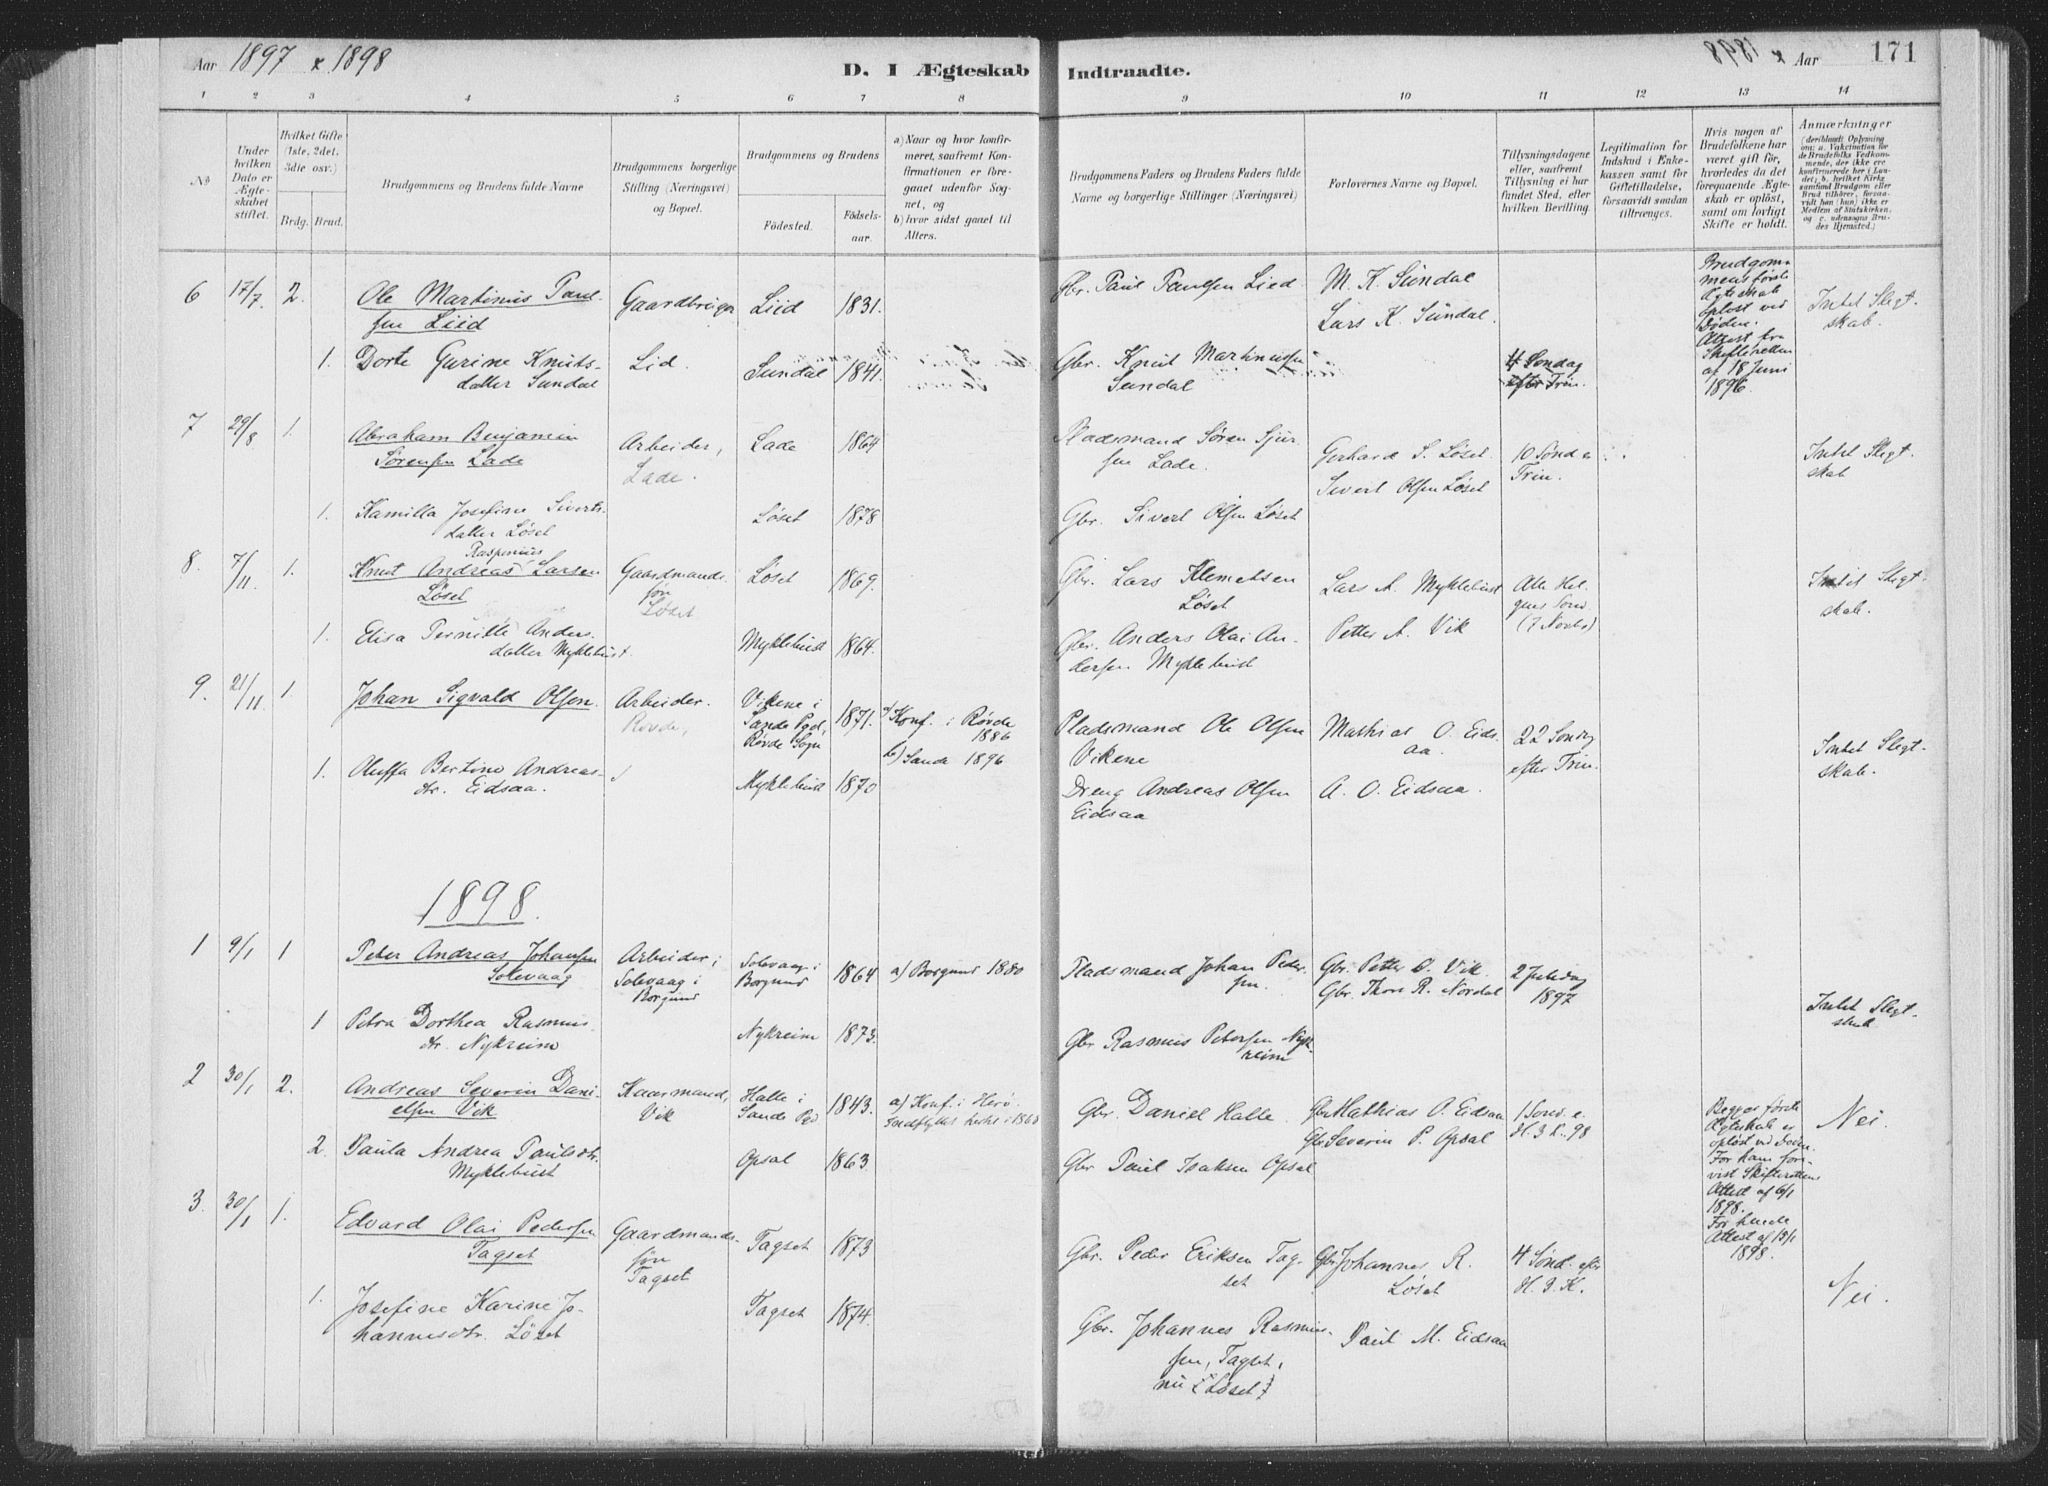 Aar 1897 & 1898
D. I Ægteskab Indtraadte.
1898 & Aar 171
1 2 3 4 5 6 7 8 9 10 11 12 13 14
No
Under hvilken Dato er Ægteskabet stiftet.
Hvilket Gifte (1ste, 2det, 3die osv.)
Brdg. Brud.
Brudgommens og Brudens fulde Navne
Brudgommens borgerlige Stilling (Næringsvei) og Bopæl.
Brudgommens og Brudens
Fødested.
Fødselsaar.
a) Naar og hvor konfirmeret, saafremt Konfirmationen er foregaaet udenfor Sognet, og
b) hvor sidst gaaet til Alters.
Brudgommens Faders og Brudens Faders fulde Navne og borgerlige Stillinger (Næringsvei)
Forlovernes Navne og Bopæl.
Tillysningsdagene eller, saafremt Tillysning ei har fundet Sted, efter hvilken Bevilling.
Legitimation for Indskud i Enkekassen samt for Giftetilladelse, forsaavidt saadan tiltrænges.
Hvis nogen af Brudefolkene har været gift før, hvorledes da det foregaaende Ægteskab er opløst, samt om lovligt Skifte er holdt.
Anmærkninger
(deriblandt Oplysning om: a. Vakcination for de Brudefolks Vedkommende, der ikke ere konfirmerede her i Landet; b. hvilket Kirkesamfund Brudgom eller Brud tilhører, forsaavidt han (hun) ikke er Medlem af Statskirken, og c. udensogns Brudes Hjemsted.)
6 17/7 2. Ole Martinus Paulsen Liid Gaardbruger Liid 1831. Gbr. Paul Paulsen Lied M. K. Sundal
Lars K. Sundal.
Brudgommens første Ægteskab opløst ved Døden. Attest fra Skifteretten af 18 Juni 1896.
Intet Slegtskab.
1. Dorte Gurine Knutsdatter Sundal Lid. Sundal 1841. Gbr. Knut Martinussen Sundal 4 Søndag efter Trin.
7 29/8 1. Abraham Benjamin Sørensen Lade Arbeider, Lade. Lade 1864 Pladsmand Søren Sjursen Lade. Gerhard S. Løset.
Sivert Olsen Løset 10 Sønd e Trin. Intet Slegtskab
1. Kamilla Josefine Sivertsdatter Løset Løset 1878 Gbr. Sivert Olsen Løset
8. 7/11 1. Knut Andreas Rasmus Larsen Løset Gaardmandssøn Løset Løset 1869. Gbr. Lars Klemetsen Løset Lars A. Myklebust
Petter A. Vik Alle Helgens Sønd. (7 Novbr) Intet Slegtskab.
1. Elisa Pernille Andersdatter Myklebust. Myklebust 1864. Gbr. Anders Olai Andersen Myklebust
9. 21/11 1. Johan Sigvald Olsen. Arbeider. Røvde, Vikene i Sande Pgd, Røvde Sogn 1871. a) Konf. i Røvde 1886
b) Sande 1896 Pladsmand Ole Olsen Vikene Mathias O. Eidsaa.
A. O. Eidsaa. 22 Søndag efter Trin. Intet Slegtskab.
1. Oluffa Bertine Andreasdtr. Eidsaa. Myklebust 1870 Dreng Andreas Olsen Eidsaa
1898.
1 9/1 1 Peter Andreas Johansen Solevaag Arbeider i Solevaag i Borgund Solevaag i Borgund 1864 a) Borgund 1880 Pladsmand Johan Pedersen. Gbr. Petter A. Vik.
Gbr. Thore R. Nordal 2 Juledag 1897 Intet Slegtskab
1 Petra Dorthea Rasmusdtr. Nykreim Nykreim 1873. Gbr Rasmus Petersen Nykreim
2 30/1 2. Andreas Severin Danielsen Vik Kaarmand, Vik Halle i Sande Pgd 1843. a) Konf. i Herø. Indflyttet hertil i 1860 Gbr. Daniel Halle. Gbr Mathias O. Eidsaa
Gbr Severin P. Opsal 1 Sønd. e. H. 3 K. 98
Begges første Ægteskab er opløst ved Døden. For ham forevist Skifterettens Attest af 6/1 1898. For hende Attest af 15/1 1898.
Nei.
2. Paula Andrea Paulsdtr. Myklebust Opsal 1863 Gbr Paul Isaksen Opsal
3. 30/1 1. Edvard Olai Pedersen Tagset Gaardmandssøn Tagset Tagset 1873 Gbr. Peder Eriksen Tagset Gbr Johannes R. Løset
Paul M. Eidsaa 4 Sønd. efter H. 3. K. Nei.
1. Josefine Karine Johannesdtr. Løset Tagset 1874. Gbr. Johannes Rasmussen, Tagset, nu Løset